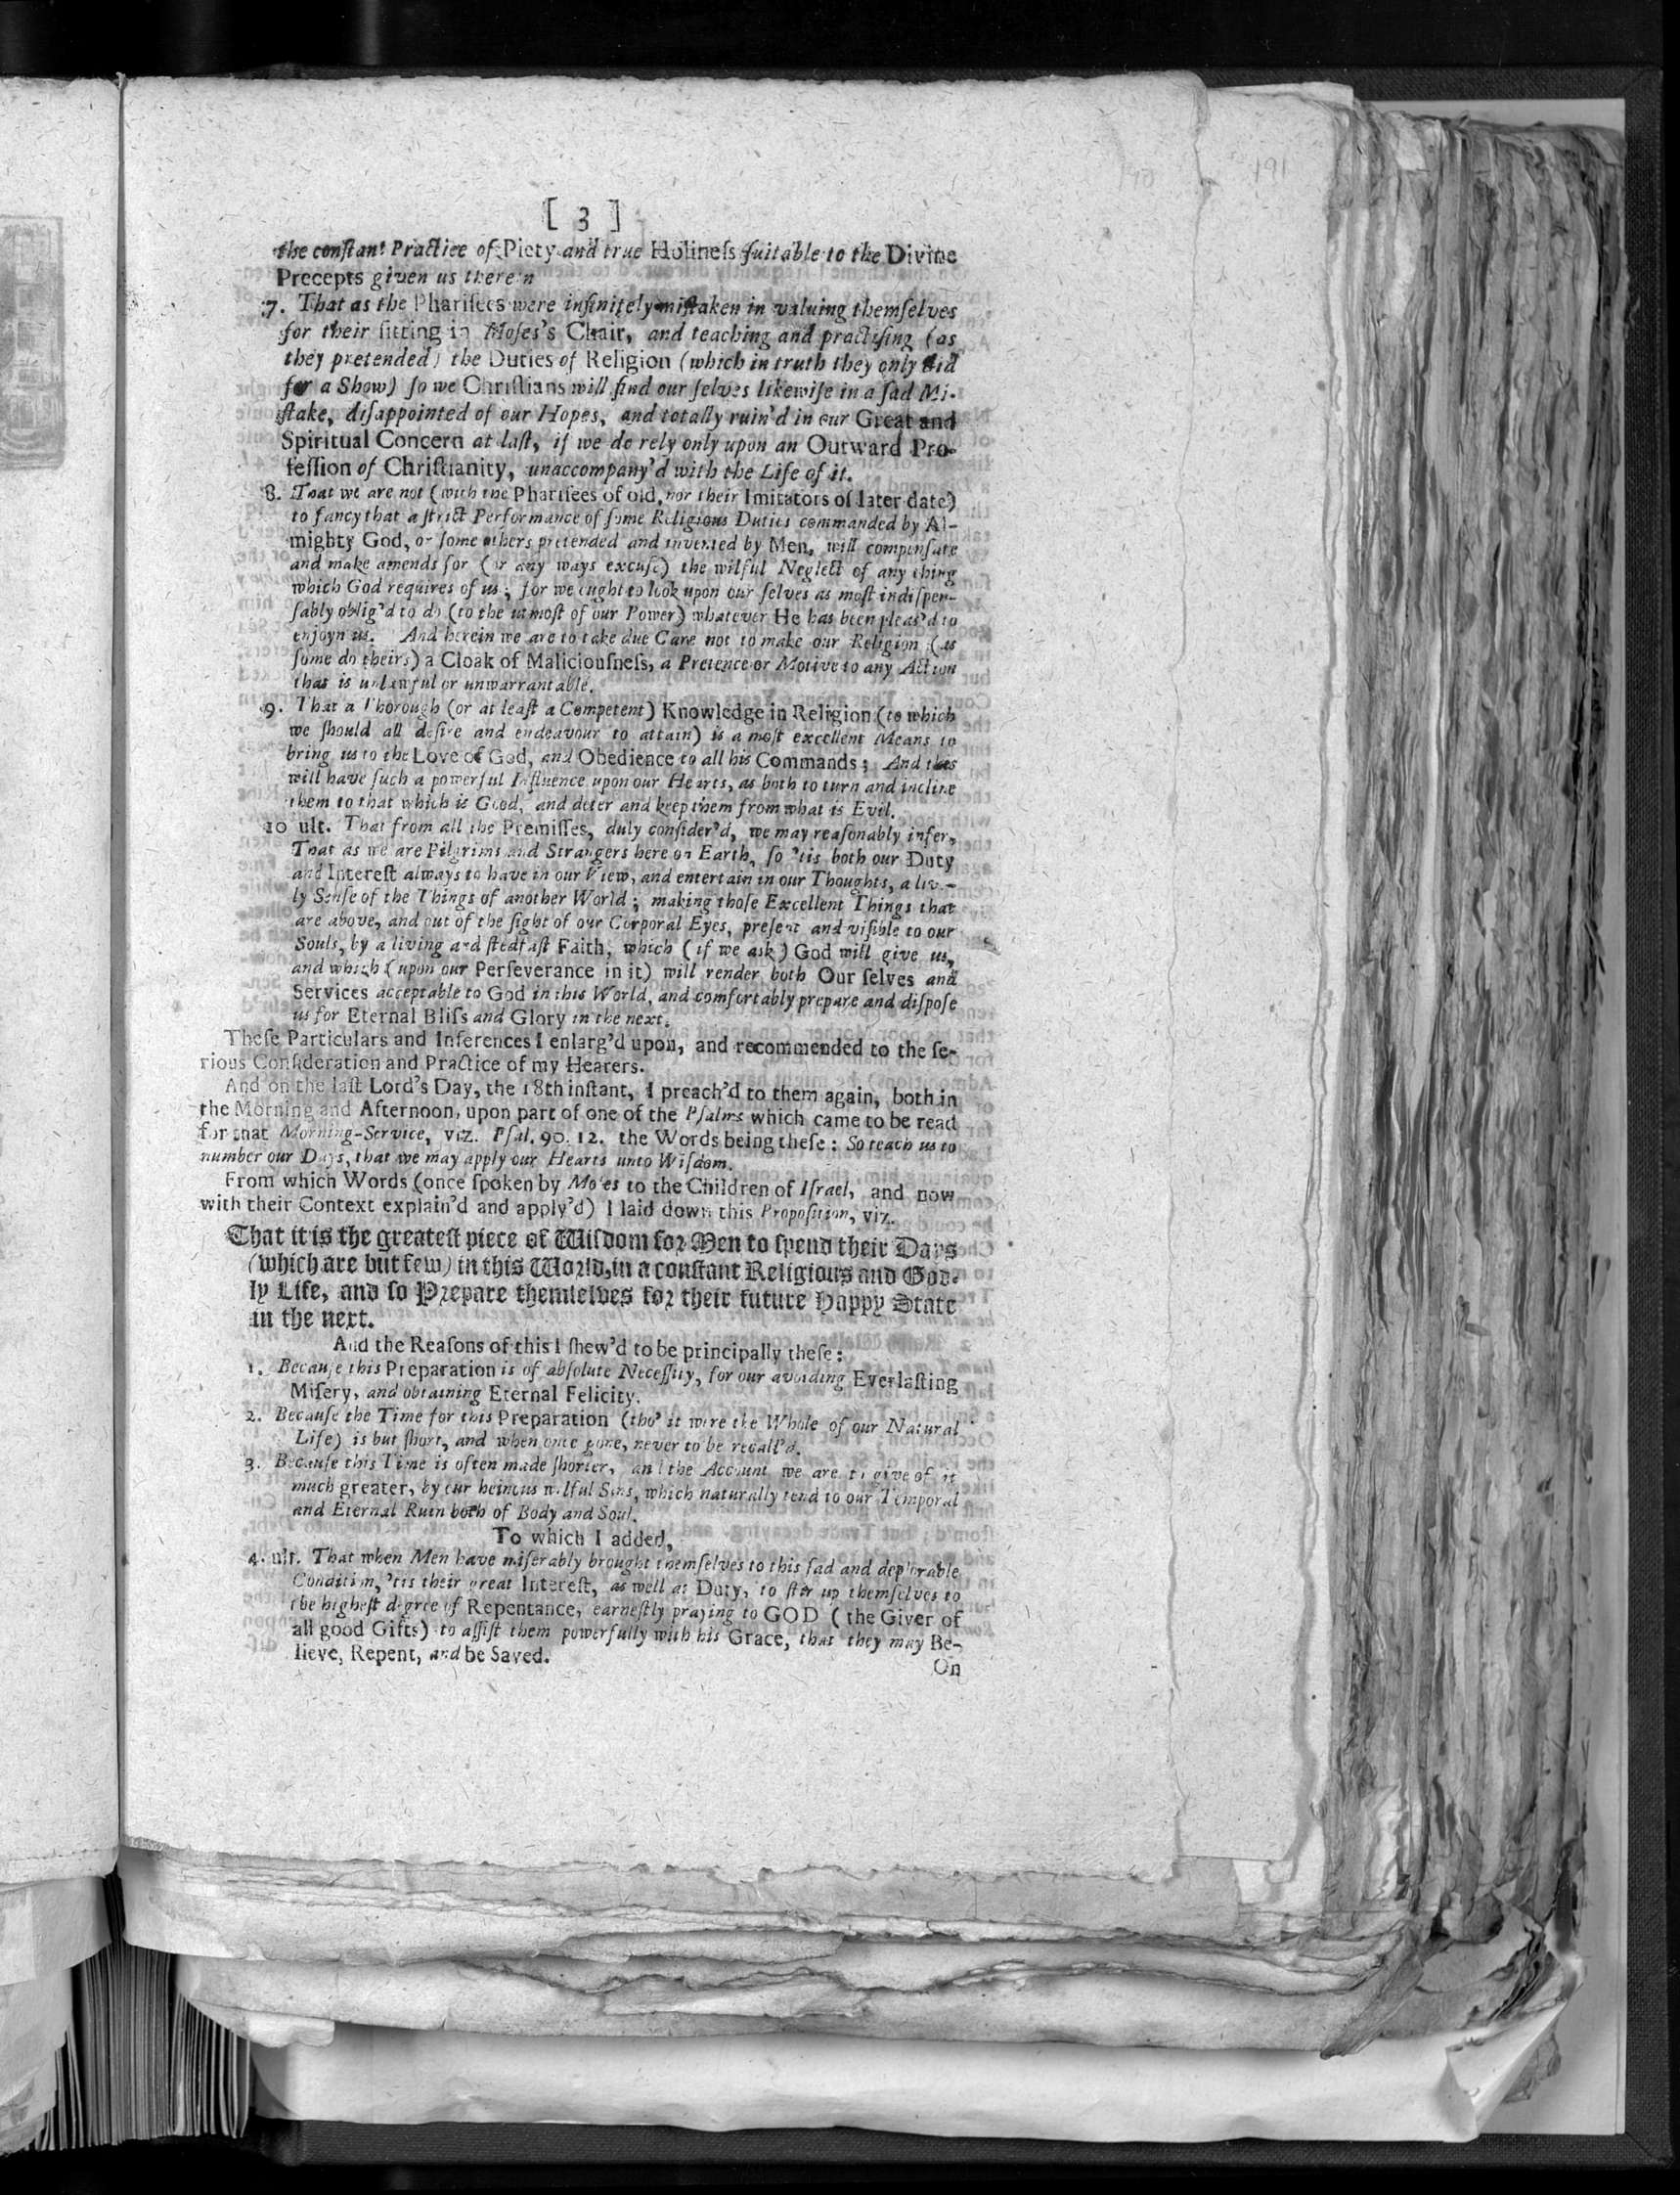 190 191
[ 3 ]
the conſtant Practice of Piety and true Holineſs ſuitable to the Divine
Precepts given us therein
7. That as the Phariſees were infinitely miſtaken in valuing themſelves
for their ſitting in Moſes's Chair, and teaching and practiſing (as
they pretended) the Duties of Religion (which in truth they only did
for a Show) ſo we Chriſtians will find our ſelves likewiſe in a ſad Mi-
ſtake, diſappointed of our Hopes, and totally ruin'd in our Great and
Spiritual Concern at laſt, if we do rely only upon an Outward Pro-
feſſion of Chriſtianity, unaccompany'd with the Life of it.
8. That we are not (with the Phariſees of old, nor their Imitators of later date)
to fancy that a ſtrict Performance of ſome Religious Duties commanded by Al-
mighty God, or ſome others pretended and invented by Men, will compenſate
and make amends for (or any ways excuſe) the wilful Neglect of any thing
which God requires of us; for we ought to look upon our ſelves as moſt indiſpen-
ſably oblig'd to do (to the utmoſt of our Power) whatever He has been pleas'd to
enjoyn us. And herein we are to take due Care not to make our Religion (as
ſome do theirs) a Cloak of Maliciouſneſs, a Pretence or Motive to any Action
that is unlawful or unwarrantable.
9. That a Thorough (or at leaſt a Competent) Knowledge in Religion (to which
we ſhould all deſire and endeavour to attain) is a moſt excellent Means to
bring us to the Love of God, and Obedience to all his Commands; And this
will have ſuch a powerful Influence upon our Hearts, as both to turn and incline
them to that which is Good, and deter and keep them from what is Evil.
10 ult. That from all the Premiſſes, duly conſider'd, we may reaſonably infer,
That as we are Pilgrims and Strangers here on Earth, ſo 'tis both our Duty
and Intereſt always to have in our View, and entertain in our Thoughts, a live-
ly Senſe of the Things of another World; making thoſe Excellent Things that
are above, and out of the ſight of our Corporal Eyes, preſent and viſible to our
Souls, by a living and ſtedfaſt Faith, which (if we ask) God will give us,
and which (upon our Perſeverance in it) will render both Our ſelves and
Services acceptable to God in this World, and comfortably prepare and diſpoſe
us for Eternal Bliſs and Glory in the next.
Theſe Particulars and Inferences I enlarg'd upon, and recommended to the ſe-
rious Conſideration and Practice of my Hearers.
And on the laſt Lord's Day, the 18th inſtant, I preach'd to them again, both in
the Morning and Afternoon, upon part of one of the Pſalms which came to be read
for that Morning-Service, viz. Pſal. 90. 12. the Words being theſe: So teach us to
number our Days, that we may apply our Hearts unto Wiſdom.
From which Words (once ſpoken by Moſes to the Children of Iſrael, and now
with their Context explain'd and apply'd) I laid down this Propoſition, viz.
That it is the greateſt piece of Wiſdom for Men to ſpend their Days
(which are but few) in this World, in a conſtant Religious and God-
ly Life, and ſo Prepare themſelves for their future Happy State
in the next.
And the Reaſons of this I ſhew'd to be principally theſe:
1. Becauſe this Preparation is of abſolute Neceſſity, for our avoiding Everlaſting
Miſery, and obtaining Eternal Felicity.
2. Becauſe the Time for this Preparation (tho' it were the Whole of our Natural
Life) is but ſhort, and when once gone, never to be recall'd.
3. Becauſe this Time is often made ſhorter, and the Account we are to give of it
much greater, by our heinous wilful Sins, which naturally tend to our Temporal
and Eternal Ruin both of Body and Soul.
To which I added,
4. ult. That when Men have miſerably brought themſelves to this ſad and deplorable
Condition, 'tis their great Intereſt, as well as Duty, to ſtir up themſelves to
the higheſt degree of Repentance, earneſtly praying to GOD (the Giver of
all good Gifts) to aſſiſt them powerfully with his Grace, that they may Be-
lieve, Repent, and be Saved.
On